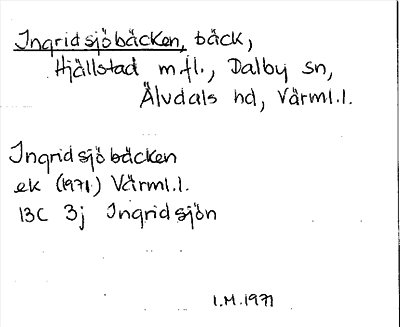 Ingridsjöbäcken, bäck,
Hjällstad m.fl., Dalby sn,
Älvdals hd, Värml.l.
Ingridsjöbäcken
ek (1971) Värml.l.
13C 3j Ingridsjön
I.M.1971